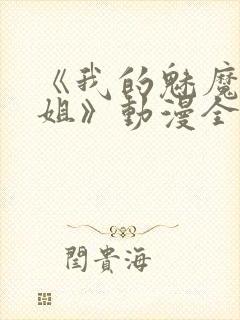 《我的魅魔
姐》動漫全
閆貴海